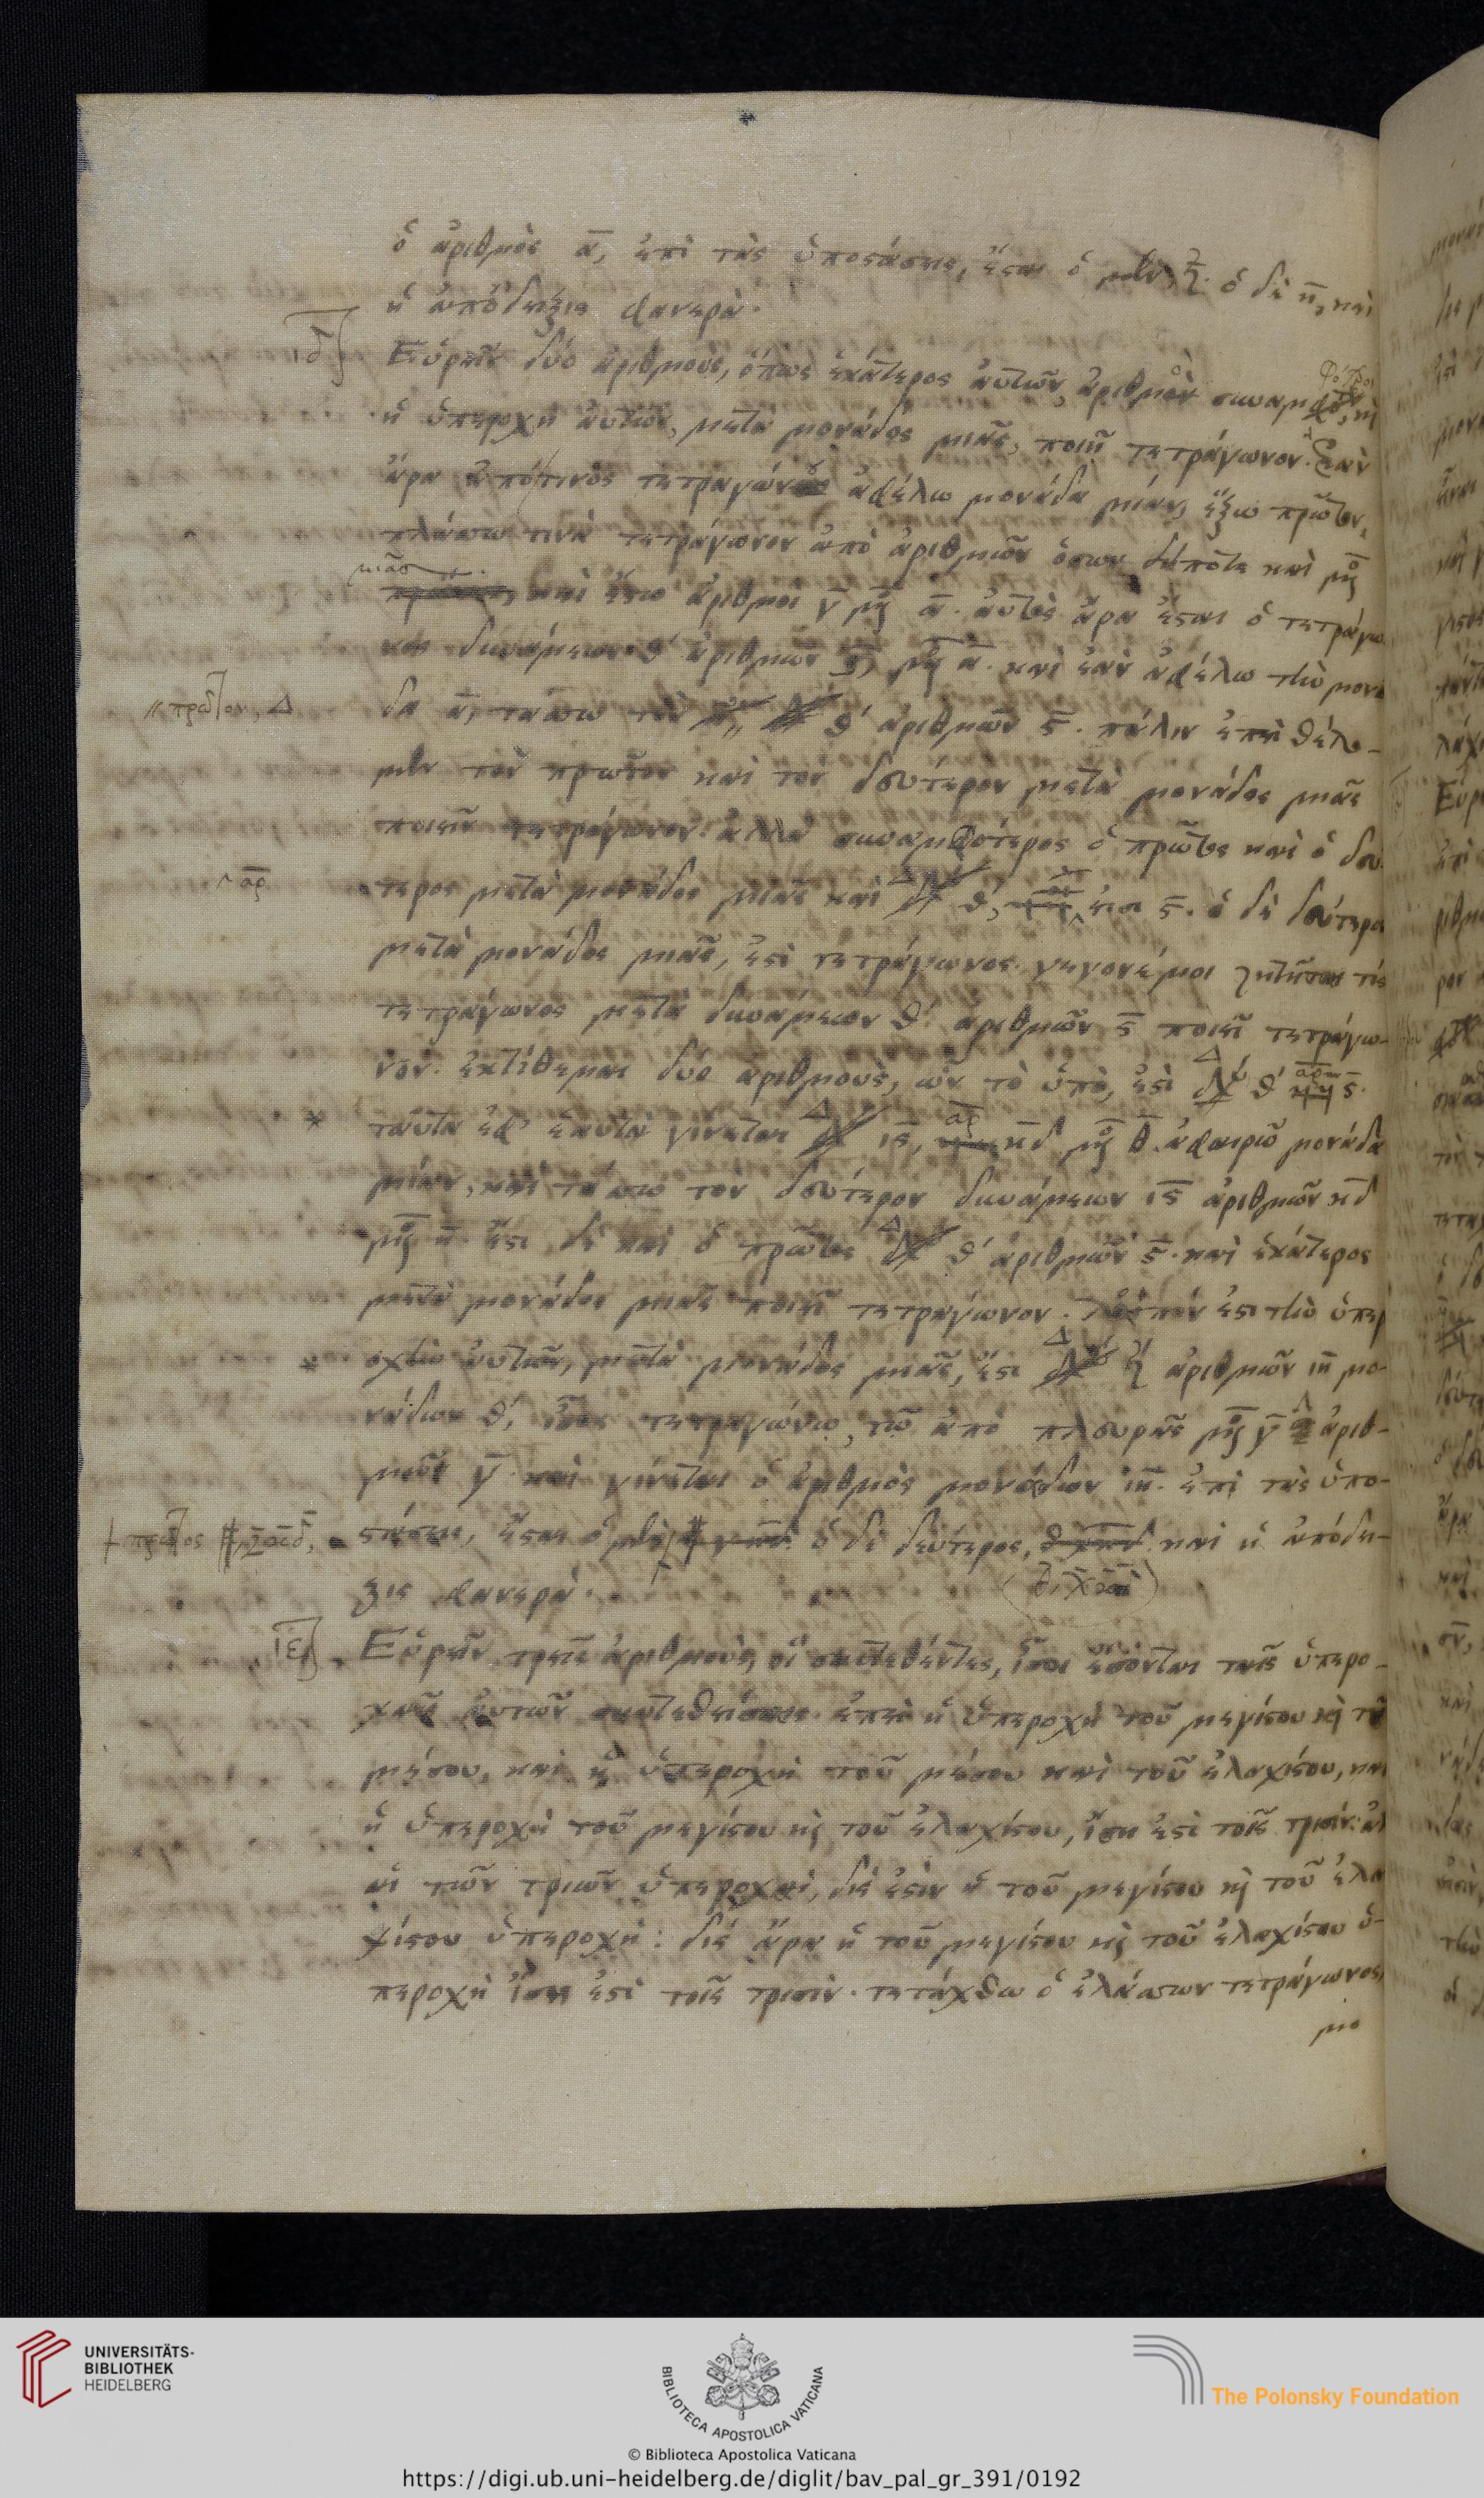 ὁ ἀριθμὸς α̅, ἐπὶ τὰς ὑποστάσεις, ἔσται ὁ μὲν, ὁ δὲ η̅, καὶ
ἡ ἀπόδειξις φανερά.
ιδ
Εὑρεῖν δύο ἀριθμούς, ὅπως ἑκάτερος αὐτῶν, ἀριθμὸν συναμφότερος, καὶ
ἡ ὑπεροχὴ αὐτῶν, μετὰ μονάδος μιᾶς, ποιῇ τετράγωνον. Ἐὰν
ἄρα ἀπό τινος τετραγώνου ἀφέλω μονάδα μίαν, ἕξω πρῶτον,
πλάσσω τινὰ τετράγωνον ἀπὸ ἀριθμῶν ὅσων δήποτε καὶ μο
μιᾶς
καὶ ἔστω ἀριθμοὶ γ̅ μο α̅. αὐτὸς ἄρα ἔσται ὁ τετράγω
νος δυνάμεων θ ἀριθμῶν ς̅, μο α̅. καὶ ἐὰν ἀφέλω τὴν μονά
πρῶτον, Δ
δα α̅, τάσσω τὸν θ ἀριθμῶν ς̅. πάλιν ἐπεὶ θέλο-
μεν τὸν πρῶτον καὶ τὸν δεύτερον μετὰ μονάδος μιᾶς
ποιεῖν τετράγωνον. ἀλλὰ συναμφότερος ὁ πρῶτος καὶ ὁ δεύ
αρ
τερος μετὰ μονάδος μιᾶς καὶ θ, εἰσι ς̅. ὁ δὲ δεύτερος
μετὰ μονάδος μιᾶς, ἐστὶ τετράγωνος. γέγονέ μοι ζητῆσαι τίς
τετράγωνος μετὰ δυνάμεων θ ἀριθμῶν ς̅ ποιεῖ τετράγω-
νον. ἐκτίθεμαι δύο ἀριθμοὺς, ὧν τὸ ὑπὸ, ἐστὶ Δυ θ ς̅.
ταῦτα ἐφ' ἑαυτὰ γίνεται Δ ις̅, αρ κδ μο θ̅. ἀφαιρῶ μονάδα
μίαν, καὶ τάσσω τὸν δεύτερον δυνάμεων ις̅ ἀριθμῶν κδ
μο η̅. ἔστι δὲ καὶ ὁ πρῶτος Δ θ ἀριθμῶν ς̅. καὶ ἑκάτερος
μετὰ μονάδος μιᾶς ποιεῖ τετράγωνον. λοιπόν ἐστι τὴν ὑπερ
οχὴν αὐτῶν, μετὰ μονάδος μιᾶς, ἔστι Δυ ζ ἀριθμῶν ιη̅ μο-
νάδων θ, ἴσος τετραγώνῳ, τῷ ἀπὸ πλευρᾶς μο γ̅ Λ ἀριθ-
μῶν γ̅. καὶ γίνεται ὁ ἀριθμὸς μονάδων ιη̅. ἐπὶ τὰς ὑπο-
πρῶτος
στάσεις, ἔσται ὁ μὲν ὁ δὲ δεύτερος, καὶ ἡ ἀπόδει-
ξις φανερά.
ιε
Εὑρεῖν τρεῖς ἀριθμοὺς, οἳ συντεθέντες, ἴσοι ἔσονται ταῖς ὑπερο-
χαῖς αὐτῶν συντεθείσαις. ἐπεὶ ἡ ὑπεροχὴ τοῦ μεγίστου καὶ τοῦ
μέσου, καὶ ἡ ὑπεροχὴ τοῦ μέσου καὶ τοῦ ἐλαχίστου, καὶ
ἡ ὑπεροχὴ τοῦ μεγίστου καὶ τοῦ ἐλαχίστου, ἴση ἐστὶ τοῖς τρισίν. ἀλ
αἱ τῶν τριῶν ὑπεροχαὶ, δίς ἐστιν ἡ τοῦ μεγίστου καὶ τοῦ ἐλα
χίστου ὑπεροχή: δὶς ἄρα ἡ τοῦ μεγίστου καὶ τοῦ ἐλαχίστου ὑ-
περοχὴ ἴση ἐστὶ τοῖς τρισίν. τετάχθω ὁ ἐλάσσων τετράγωνος,
μο
UNIVERSITÄTS-
BIBLIOTHEK
HEIDELBERG
BIBLIOTECA APOSTOLICA VATICANA
The Polonsky Foundation
© Biblioteca Apostolica Vaticana
https://digi.ub.uni-heidelberg.de/diglit/bav_pal_gr_391/0192